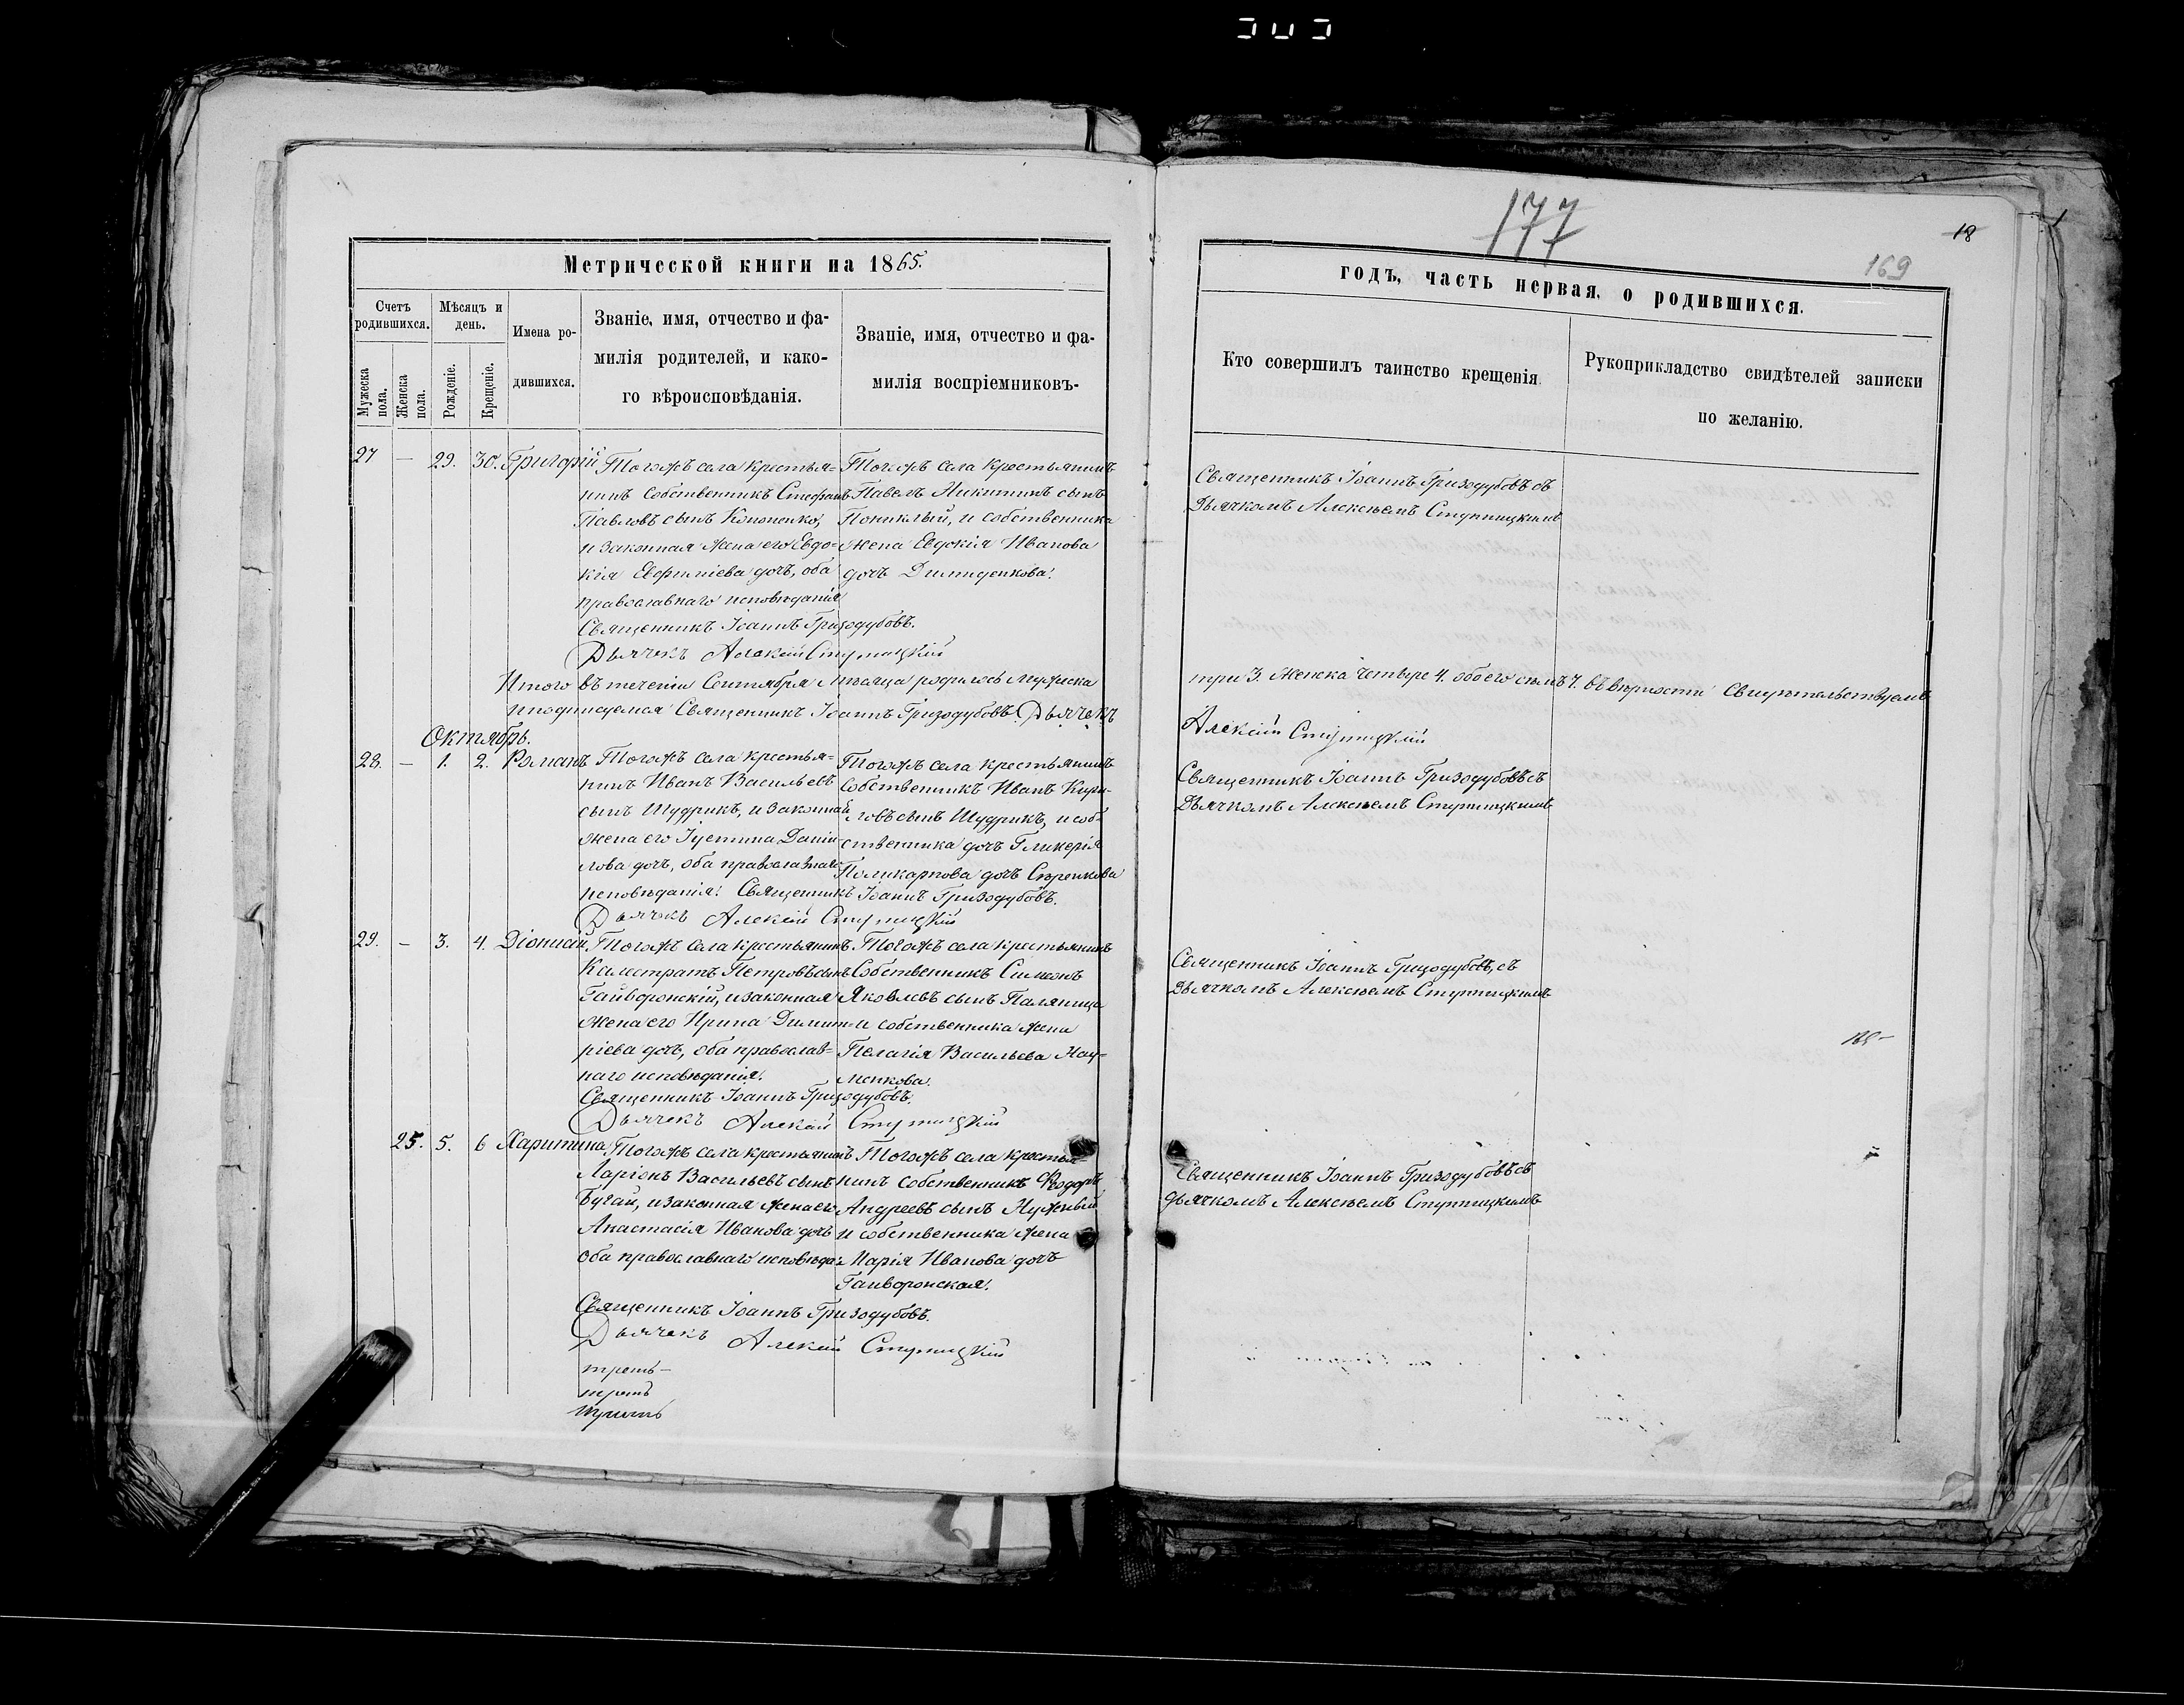 177
18
169
Метрической книги на 1865.
годъ, часть первая, о родившихся.
Счетъ родившихся.
Мѣсяцъ и день.
Имена родившихся.
Званіе, имя, отчество и фамилія родителей, и какого вѣроисповѣданія.
Званіе, имя, отчество и фамилія воспріемниковъ.
Кто совершилъ таинство крещенія.
Рукоприкладство свидѣтелей записки по желанію.
Мужеска пола.
Женска пола.
Рожденіе.
Крещеніе.
27 — 29. 30. Григорій
Тогожъ села крестья-
нинъ собственникъ Стефанъ
Павловъ сынъ Кононенко,
и законная жена его Евдо-
кія Евфиміева дочь, оба
православнаго исповѣданія
Священникъ Іоаннъ Гризодубовъ.
Дьячекъ Алексій Ступницкій
Тогожъ села крестьянинъ
Павелъ Никитинъ сынъ
Пониклый, и собственника
жена Евдокія Иванова
дочь
Священникъ Іоаннъ Гризодубовъ съ
Дьячкомъ Алексѣемъ Ступницкимъ
Итого въ теченіи Сентября мѣсяца родилось мужеска
три 3. женска четыре 4. обоего семь 7. въ вѣрности свидѣтельствуемъ
и подписуемся Священникъ Іоаннъ Гризодубовъ. Дьячекъ
Алексій Ступницкій
Октябрь.
28. — 1. 2. Романъ
Тогожъ села крестья-
нинъ Иванъ Васильевъ
сынъ Щудрикъ, и законная
жена его Іустина Даніи-
лова дочь, оба православнаго
исповѣданія. Священникъ Іоаннъ Гризодубовъ.
Дьячекъ Алексій Ступницкій
Тогожъ села крестьянинъ
собственникъ Иванъ Кири-
ловъ сынъ Щудрикъ, и соб-
ственника дочь Гликерія
Поликарпова дочь
Священникъ Іоаннъ Гризодубовъ съ
Дьячкомъ Алексѣемъ Ступницкимъ
29. — 3. 4. Діонисій.
Тогожъ села крестьянинъ
Калистратъ Петровъ сынъ
Гайворонскій, и законная
жена его Ирина Димит-
ріева дочь, оба православ-
наго исповѣданія.
Священникъ Іоаннъ Гризодубовъ.
Дьячекъ Алексій Ступницкій
Тогожъ села крестьянинъ
Собственникъ Симеонъ
Яковлевъ сынъ Паляница
и собственника жена
Пелагія Васильева Нау-
менкова.
Священникъ Іоаннъ Гризодубовъ, съ
Дьячкомъ Алексѣемъ Ступницкимъ
25. 5. 6 Харитина
Тогожъ села крестьянинъ
Ларіонъ Васильевъ сынъ
Бугай, и законная жена его
Анастасія Иванова дочь
оба православнаго исповѣда:
Священникъ Іоаннъ Гризодубовъ.
Дьячекъ Алексій Ступницкій
Тогожъ села крестья-
нинъ собственникъ Ѳеодоръ
Андреевъ сынъ Нужный
и собственника жена
Марія Иванова дочь
Гайворонская.
Священникъ Іоаннъ Гризодубовъ съ
дьячкомъ Алексѣемъ Ступницкимъ
треть
треть
треть